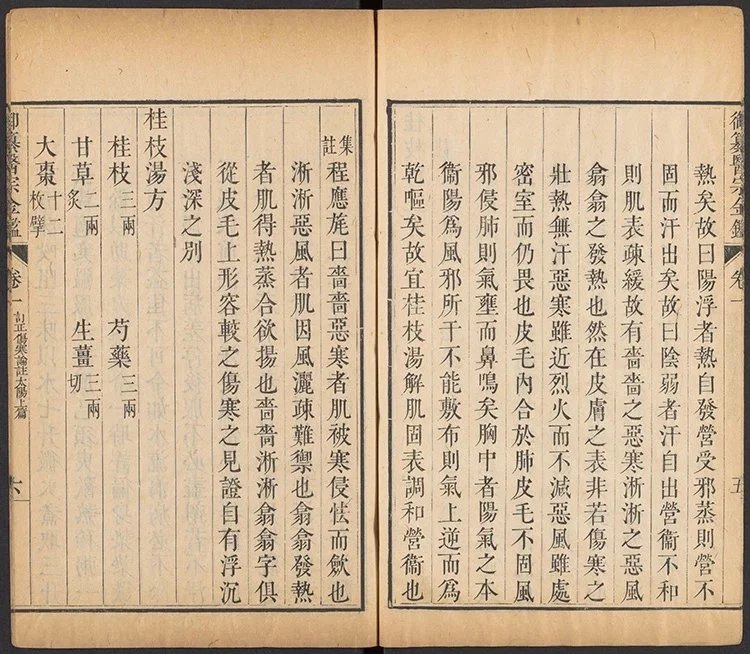 御纂醫宗金鑑 卷一 五
熱矣故曰陽浮者熱自發營受邪蒸則營不
固而汗出矣故曰陰弱者汗自出營衞不和
則肌表疎緩故有嗇嗇之惡寒淅淅之惡風
翕翕之發熱也然在皮膚之表非若傷寒之
壯熱無汗惡寒雖近烈火而不減惡風雖處
密室而仍畏也皮毛內合於肺皮毛不固風
邪侵肺則氣壅而鼻鳴矣胸中者陽氣之本
衞陽爲風邪所干不能敷布則氣上逆而爲
乾嘔矣故宜桂枝湯解肌固表調和營衞也
集註 程應旄曰嗇嗇惡寒者肌被寒侵怯而斂也
淅淅惡風者肌因風灑疎難禦也翕翕發熱
者肌得熱蒸合欲揚也嗇嗇淅淅翕翕字俱
從皮毛上形容較之傷寒之見證自有浮沉
淺深之別
桂枝湯方
桂枝三兩 芍藥三兩
甘草二兩炙 生薑三兩切
大棗十二枚擘
御纂醫宗金鑑 卷一 訂正傷寒論註太陽上篇 六